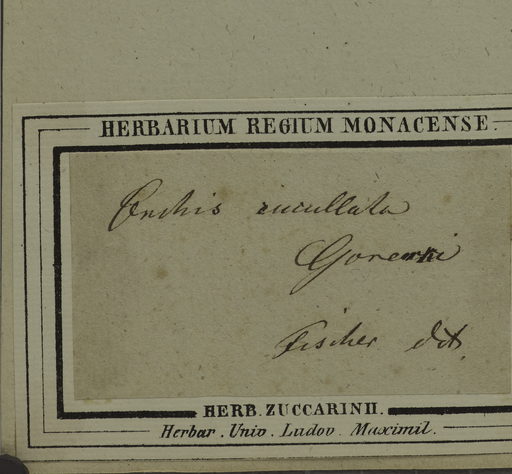 HERBARIUM REGIUM MONACENSE.
Orchis cucullata
Gorenki
Fischer ddt.
HERB. ZUCCARINII.
Herbar. Univ. Ludov. Maximil.